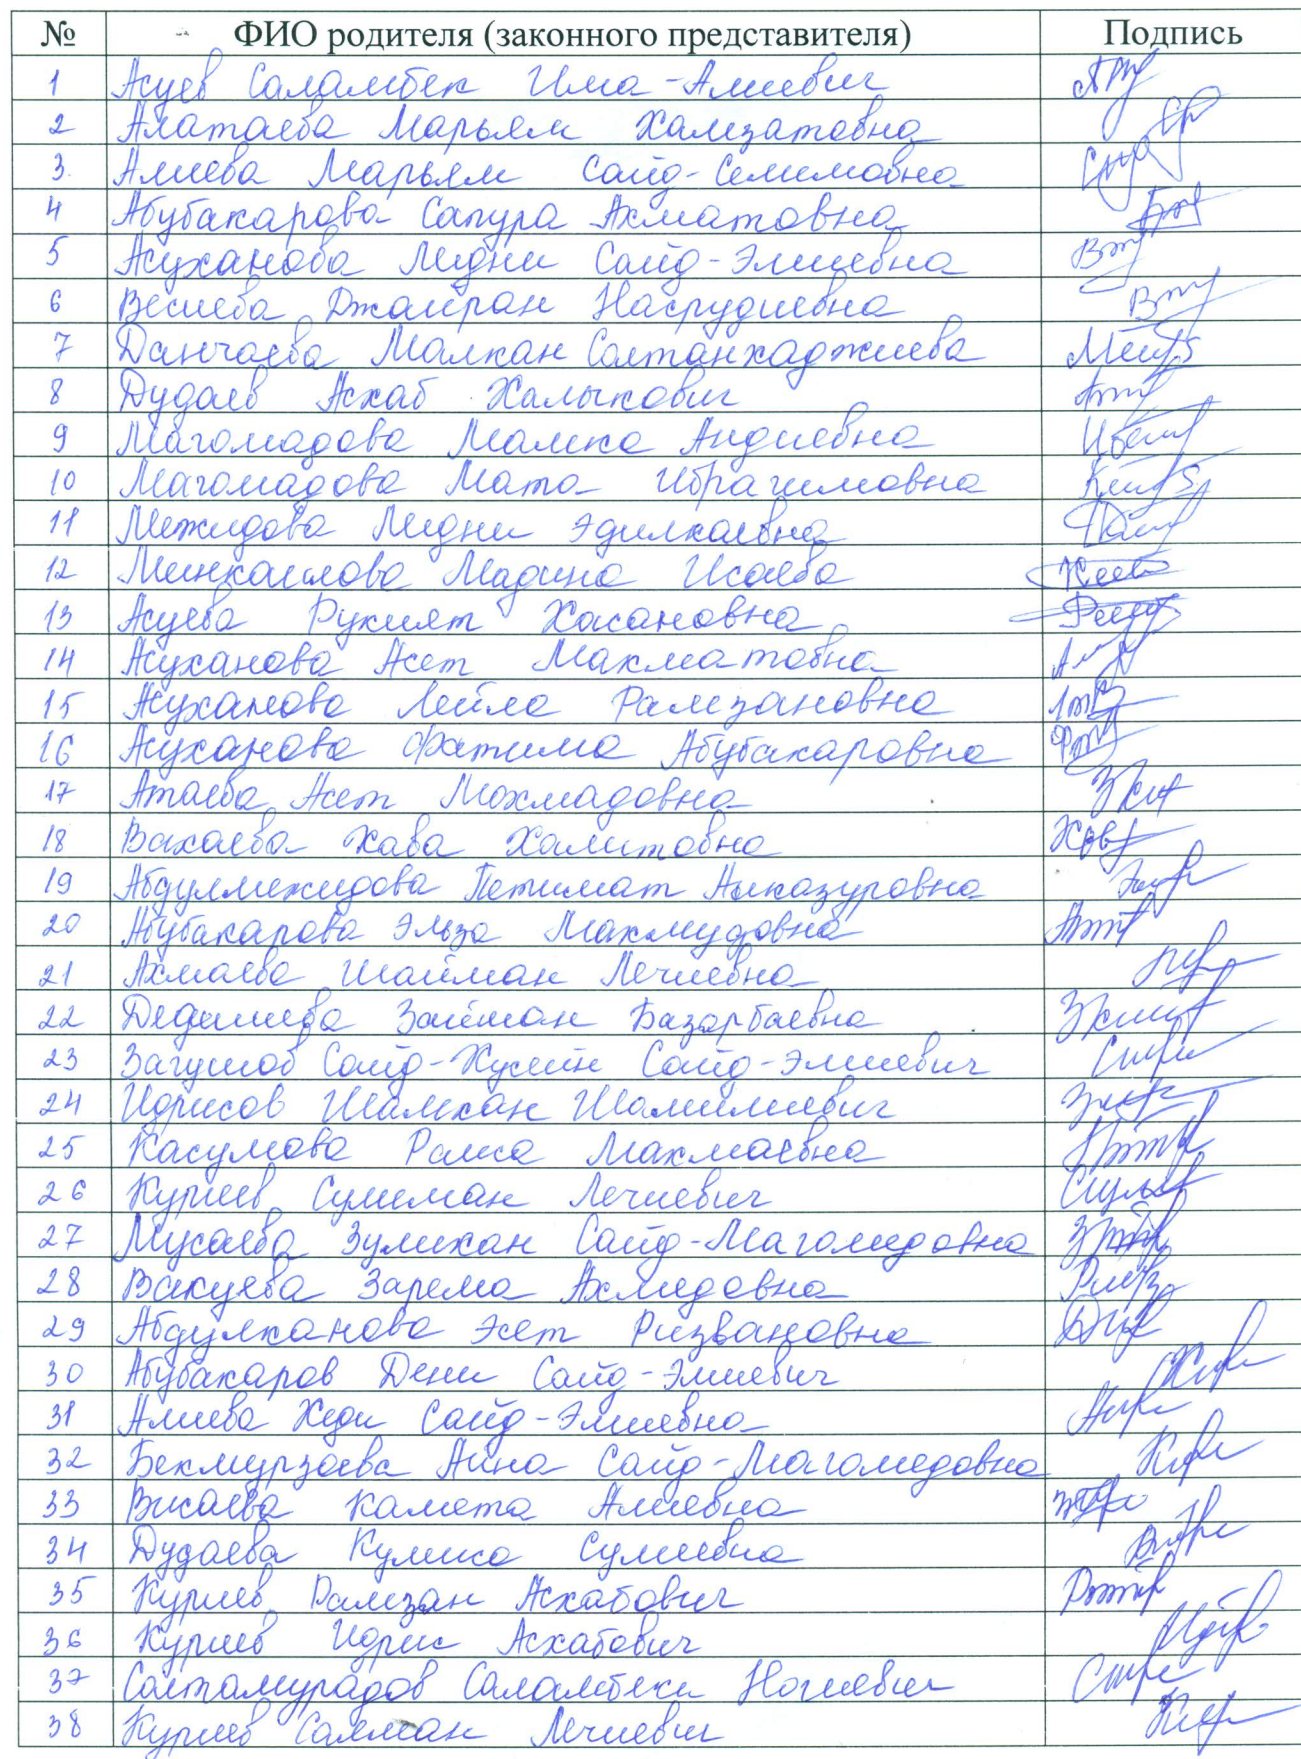 № ФИО родителя (законного представителя) Подпись
1 Асуев Саламбек Има-Алиевич
2 Алатаева Марьям Хамзатовна
3. Алиева Марьям Саид-Селимовна
4 Абубакарова Сапура Ахматовна
5 Асуханова Медни Сайд-Элиевна
6 Весиева Джайран Насрудиевна
7 Данчаева Малкан Солтанхаджиева
8 Дудаев Асхаб Халыкович
9 Магомадова Малика Андиевна
10 Магомадова Мата Ибрагимовна
11 Межидова Медни Эдилкаевна
12 Минкаилова Мадина Исаева
13 Асуева Рукият Хасановна
14 Асуханова Асет Махматовна
15 Асуханова Лейла Рамзановна
16 Асуханова Фатима Абубакаровна
17 Атаева Асет Мохмадовна
18 Вахаева Хава Хамитовна
19 Абдулмежидова Петимат
20 Абубакарова Эльза Махмудовна
21 Ахмаева Шайман Лечиевна
22 Дедишева Займан Базарбаевна
23 Загушов Саид-Хусейн Саид-Элиевич
24 Идрисов Шамхан
25 Касумова Раиса Махмаевна
26 Куриев Сулиман Лечиевич
27 Мусаева Зулихан Саид-Магомедовна
28 Вакуева Зарема Ахмедовна
29 Абдулханова Эсет Ризвановна
30 Абубакаров Дени Сайд-Элиевич
31 Алиева Хеди Сайд-Элиевна
32 Бекмурзаева Аина Сайд-Магомедовна
33 Висаева Камета Алиевна
34 Дудаева Кулиса Сулиевна
35 Куриев Рамзан Асхабович
36 Куриев Идрис Асхабович
37 Солтамурадов Саламбек
38 Куриев Салман Лечиевич